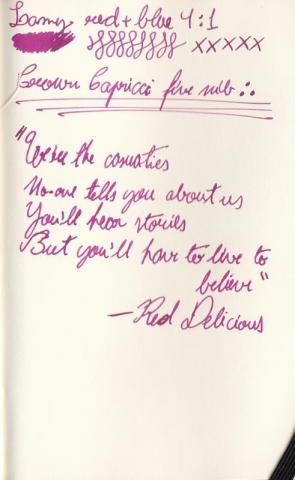 Lamy red + blue 4:1
xxxxx
Capricci fine nib :.
"We're the casualties
No-one tells you about us
You'll hear stories
But you'll have to live to
believe"
— Red Delicious